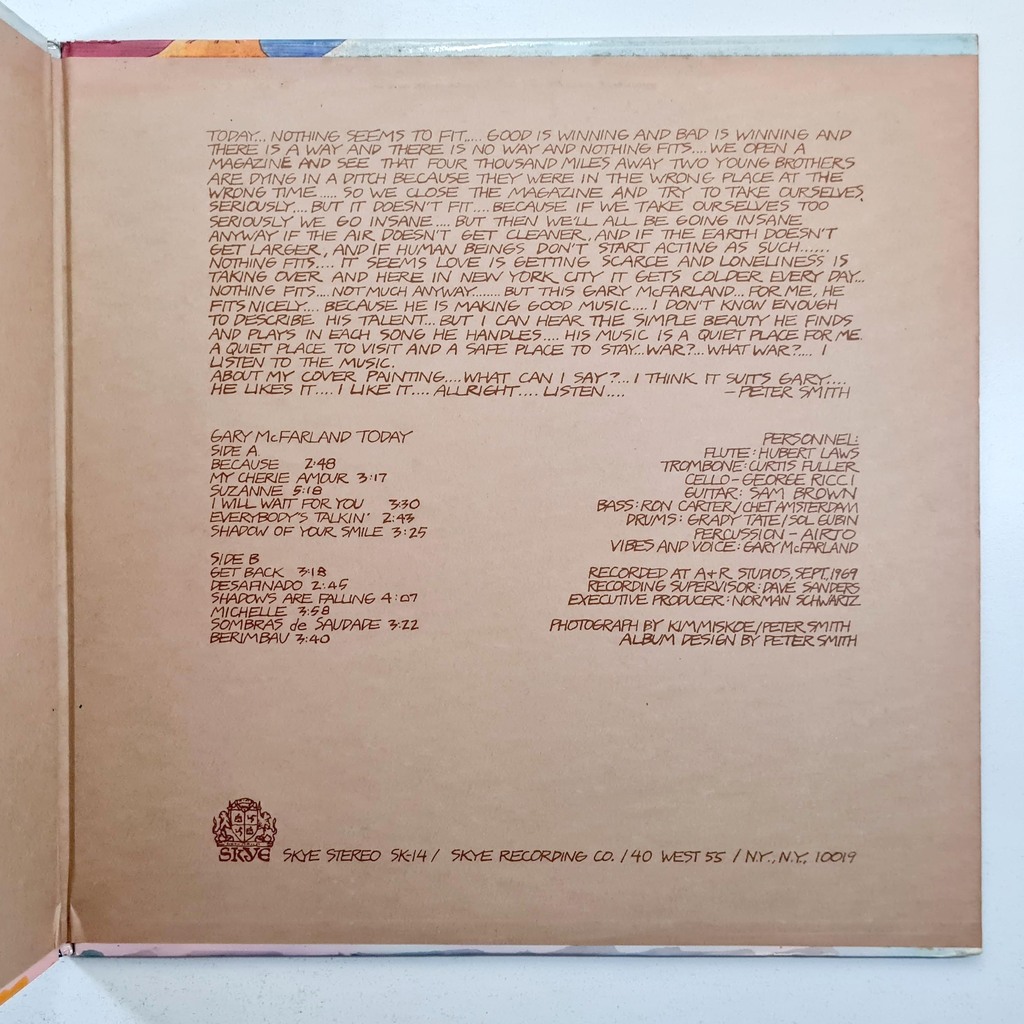 TODAY... NOTHING SEEMS TO FIT.... GOOD IS WINNING AND BAD IS WINNING AND
THERE IS A WAY AND THERE IS NO WAY AND NOTHING FITS....WE OPEN A
MAGAZINE AND SEE THAT FOUR THOUSAND MILES AWAY TWO YOUNG BROTHERS
ARE DYING IN A DITCH BECAUSE THEY WERE IN THE WRONG PLACE AT THE
WRONG TIME..... SO WE CLOSE THE MAGAZINE AND TRY TO TAKE OURSELVES
SERIOUSLY.... BUT IT DOESN'T FIT.... BECAUSE IF WE TAKE OURSELVES TOO
SERIOUSLY WE GO INSANE.... BUT THEN WE'LL ALL BE GOING INSANE
ANYWAY IF THE AIR DOESN'T GET CLEANER, AND IF THE EARTH DOESN'T
GET LARGER, AND IF HUMAN BEINGS DON'T START ACTING AS SUCH......
NOTHING FITS.... IT SEEMS LOVE IS GETTING SCARCE AND LONELINESS IS
TAKING OVER AND HERE IN NEW YORK CITY IT GETS COLDER EVERY DAY...
NOTHING FITS....NOT MUCH ANYWAY....... BUT THIS GARY McFARLAND... FOR ME, HE
FITS NICELY.... BECAUSE HE IS MAKING GOOD MUSIC.... I DON'T KNOW ENOUGH
TO DESCRIBE HIS TALENT... BUT I CAN HEAR THE SIMPLE BEAUTY HE FINDS
AND PLAYS IN EACH SONG HE HANDLES.... HIS MUSIC IS A QUIET PLACE FOR ME.
A QUIET PLACE TO VISIT AND A SAFE PLACE TO STAY...WAR?...WHAT WAR?.... I
LISTEN TO THE MUSIC.
ABOUT MY COVER PAINTING....WHAT CAN I SAY?...I THINK IT SUITS GARY....
HE LIKES IT.... I LIKE IT.... ALLRIGHT.... LISTEN.... —PETER SMITH
GARY McFARLAND TODAY
SIDE A
BECAUSE 2:48
MY CHERIE AMOUR 3:17
SUZANNE 5:18
I WILL WAIT FOR YOU 3:30
EVERYBODY'S TALKIN' 2:43
SHADOW OF YOUR SMILE 3:25
SIDE B
GET BACK 3:18
DESAFINADO 2:45
SHADOWS ARE FALLING 4:07
MICHELLE 3:58
SOMBRAS de SAUDADE 3:22
BERIMBAU 3:40
PERSONNEL:
FLUTE: HUBERT LAWS
TROMBONE: CURTIS FULLER
CELLO - GEORGE RICCI
GUITAR: SAM BROWN
BASS: RON CARTER/CHET AMSTERDAM
DRUMS: GRADY TATE/SOL GUBIN
PERCUSSION - AIRTO
VIBES AND VOICE: GARY McFARLAND
RECORDED AT A+R STUDIOS, SEPT. 1969
RECORDING SUPERVISOR: DAVE SANDERS
EXECUTIVE PRODUCER: NORMAN SCHWARTZ
PHOTOGRAPH BY KIM MISKOE/PETER SMITH
ALBUM DESIGN BY PETER SMITH
SKYE
SKYE STEREO SK-14 / SKYE RECORDING CO. / 40 WEST 55 / N.Y., N.Y., 10019